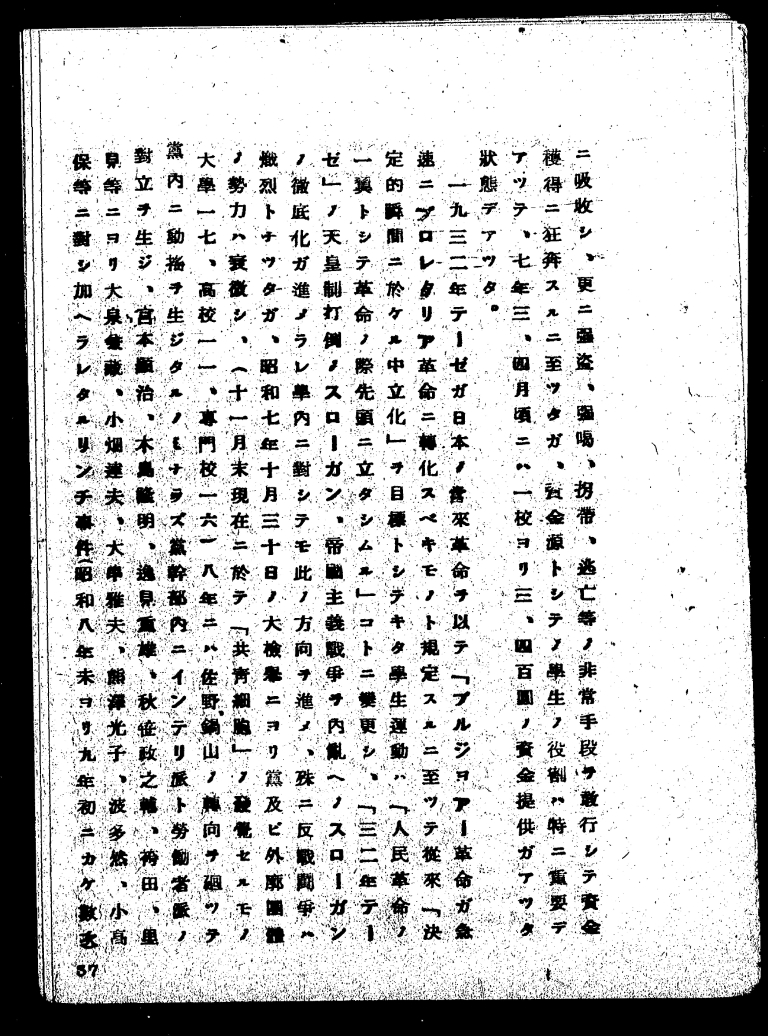 ニ吸收シ、更ニ强盜、强喝、拐帶、逃亡等ノ非常手段ヲ敢行シテ資金
獲得ニ狂奔スルニ至ツタガ、資金源トシテノ學生ノ役割ハ特ニ重要デ
アツテ、七年三、四月頃ニハ一校ヨリ三、四百圓ノ資金提供ガアツタ
狀態デアツタ。
一九三二年テーゼガ日本ノ當來革命ヲ以テ「ブルジヨアー革命ガ急
速ニプロレタリア革命ニ轉化スベキモノト規定スルニ至ツテ從來「決
定的瞬間ニ於ケル中立化」ヲ目標トシテキタ學生運動ハ「人民革命ノ
一翼トシテ革命ノ際先頭ニ立タシムル」コトニ變更シ、「三二年テー
ゼ」ノ天皇制打倒ノスローガン、帝國主義戰爭ヲ內亂ヘノスローガン
ノ徹底化ガ進メラレ學內ニ對シテモ此ノ方向ヲ進メ、殊ニ反戰鬪爭ハ
熾烈トナツタガ、昭和七年十月三十日ノ大檢擧ニヨリ黨及ビ外廓團體
ノ勢力ハ衰微シ、(十一月末現在ニ於テ「共靑細胞」ノ發覺セルモノ
大學一七、高校一一、專門校一六)八年ニハ佐野鍋山ノ轉向ヲ廻ツテ
黨內ニ動搖ヲ生ジタルノミナラズ黨幹部內ニインテリ派ト勞働者派ノ
對立ヲ生ジ、宮本顯治、木島隆明、逸見重雄、秋笹政之輔、袴田、里
見等ニヨリ大泉兼藏、小畑達夫、大串雅夫、熊澤光子、波多然、小高
保等ニ對シ加ヘラレタルリンチ事件(昭和八年末ヨリ九年初ニカケ數次
37